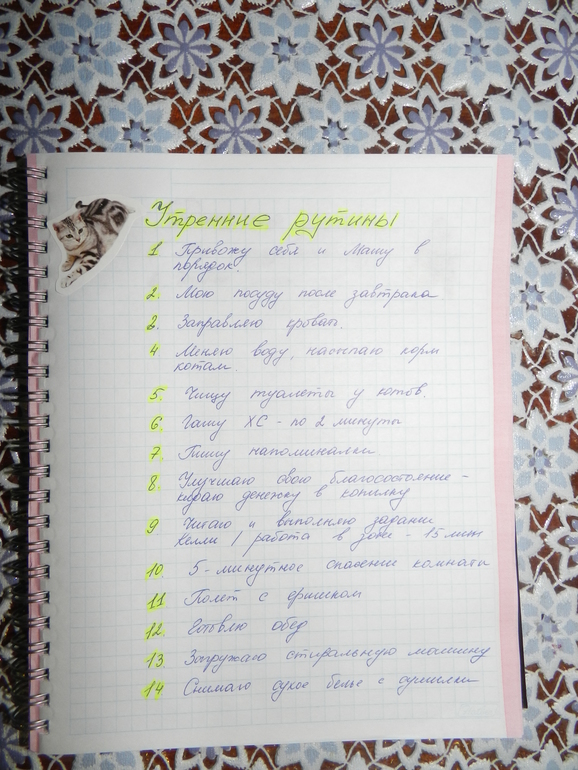 Утренние рутины
1 Привожу себя и Машу в
порядок.
2. Мою посуду после завтрака
3. Заправляю кровать.
4 Меняю воду, насыпаю корм
котам.
5. Чищу туалеты у котов.
6. Гашу ХС - по 2 минуты
7. Пишу напоминалки.
8. Улучшаю свою благосостояние -
кидаю денежку в копилку
9 Читаю и выполняю задания
Келли / работа в зоне - 15 мин
10. 5-минутное спасение комнаты
11 Полет с ершиком
12. Готовлю обед
13 Загружаю стиральную машину
14 Снимаю сухое белье с сушилки